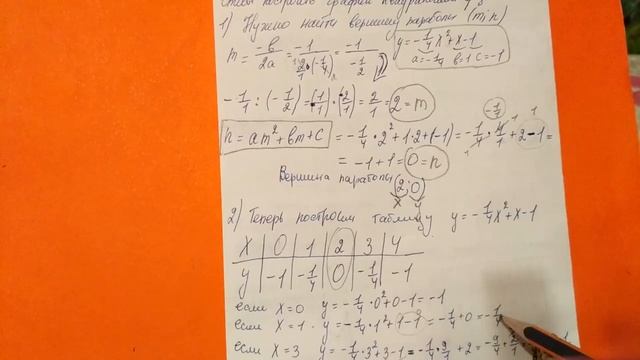 чтобы построить график
1) Нужно найти вершину параболы (m; n)
m = -в/2a = -1/(2·(-1/4)) = -1/(-1/2)
y = -1/4 x² + x - 1
a = -1/4 в = 1 c = -1
-1/1 : (-1/2) = (-1/1)·(-2/1) = 2/1 = 2 = m
n = am² + вm + c = -1/4 · 2² + 1·2 + (-1) = -1/4 · 4/1 + 2 - 1 =
= -1 + 1 = 0 = n
Вершина параболы (2; 0)
x y
2) Теперь построим таблицу y = -1/4 x² + x - 1
x | 0 | 1 | 2 | 3 | 4
y | -1 | -1/4 | 0 | -1/4 | -1
если x = 0 y = -1/4 · 0² + 0 - 1 = -1
если x = 1 y = -1/4 · 1² + 1 - 1 = -1/4 + 0 = -1/4
если x = 3 y = -1/4 · 3² + 3 - 1 = -1/4 · 9/1 + 2 = -9/4